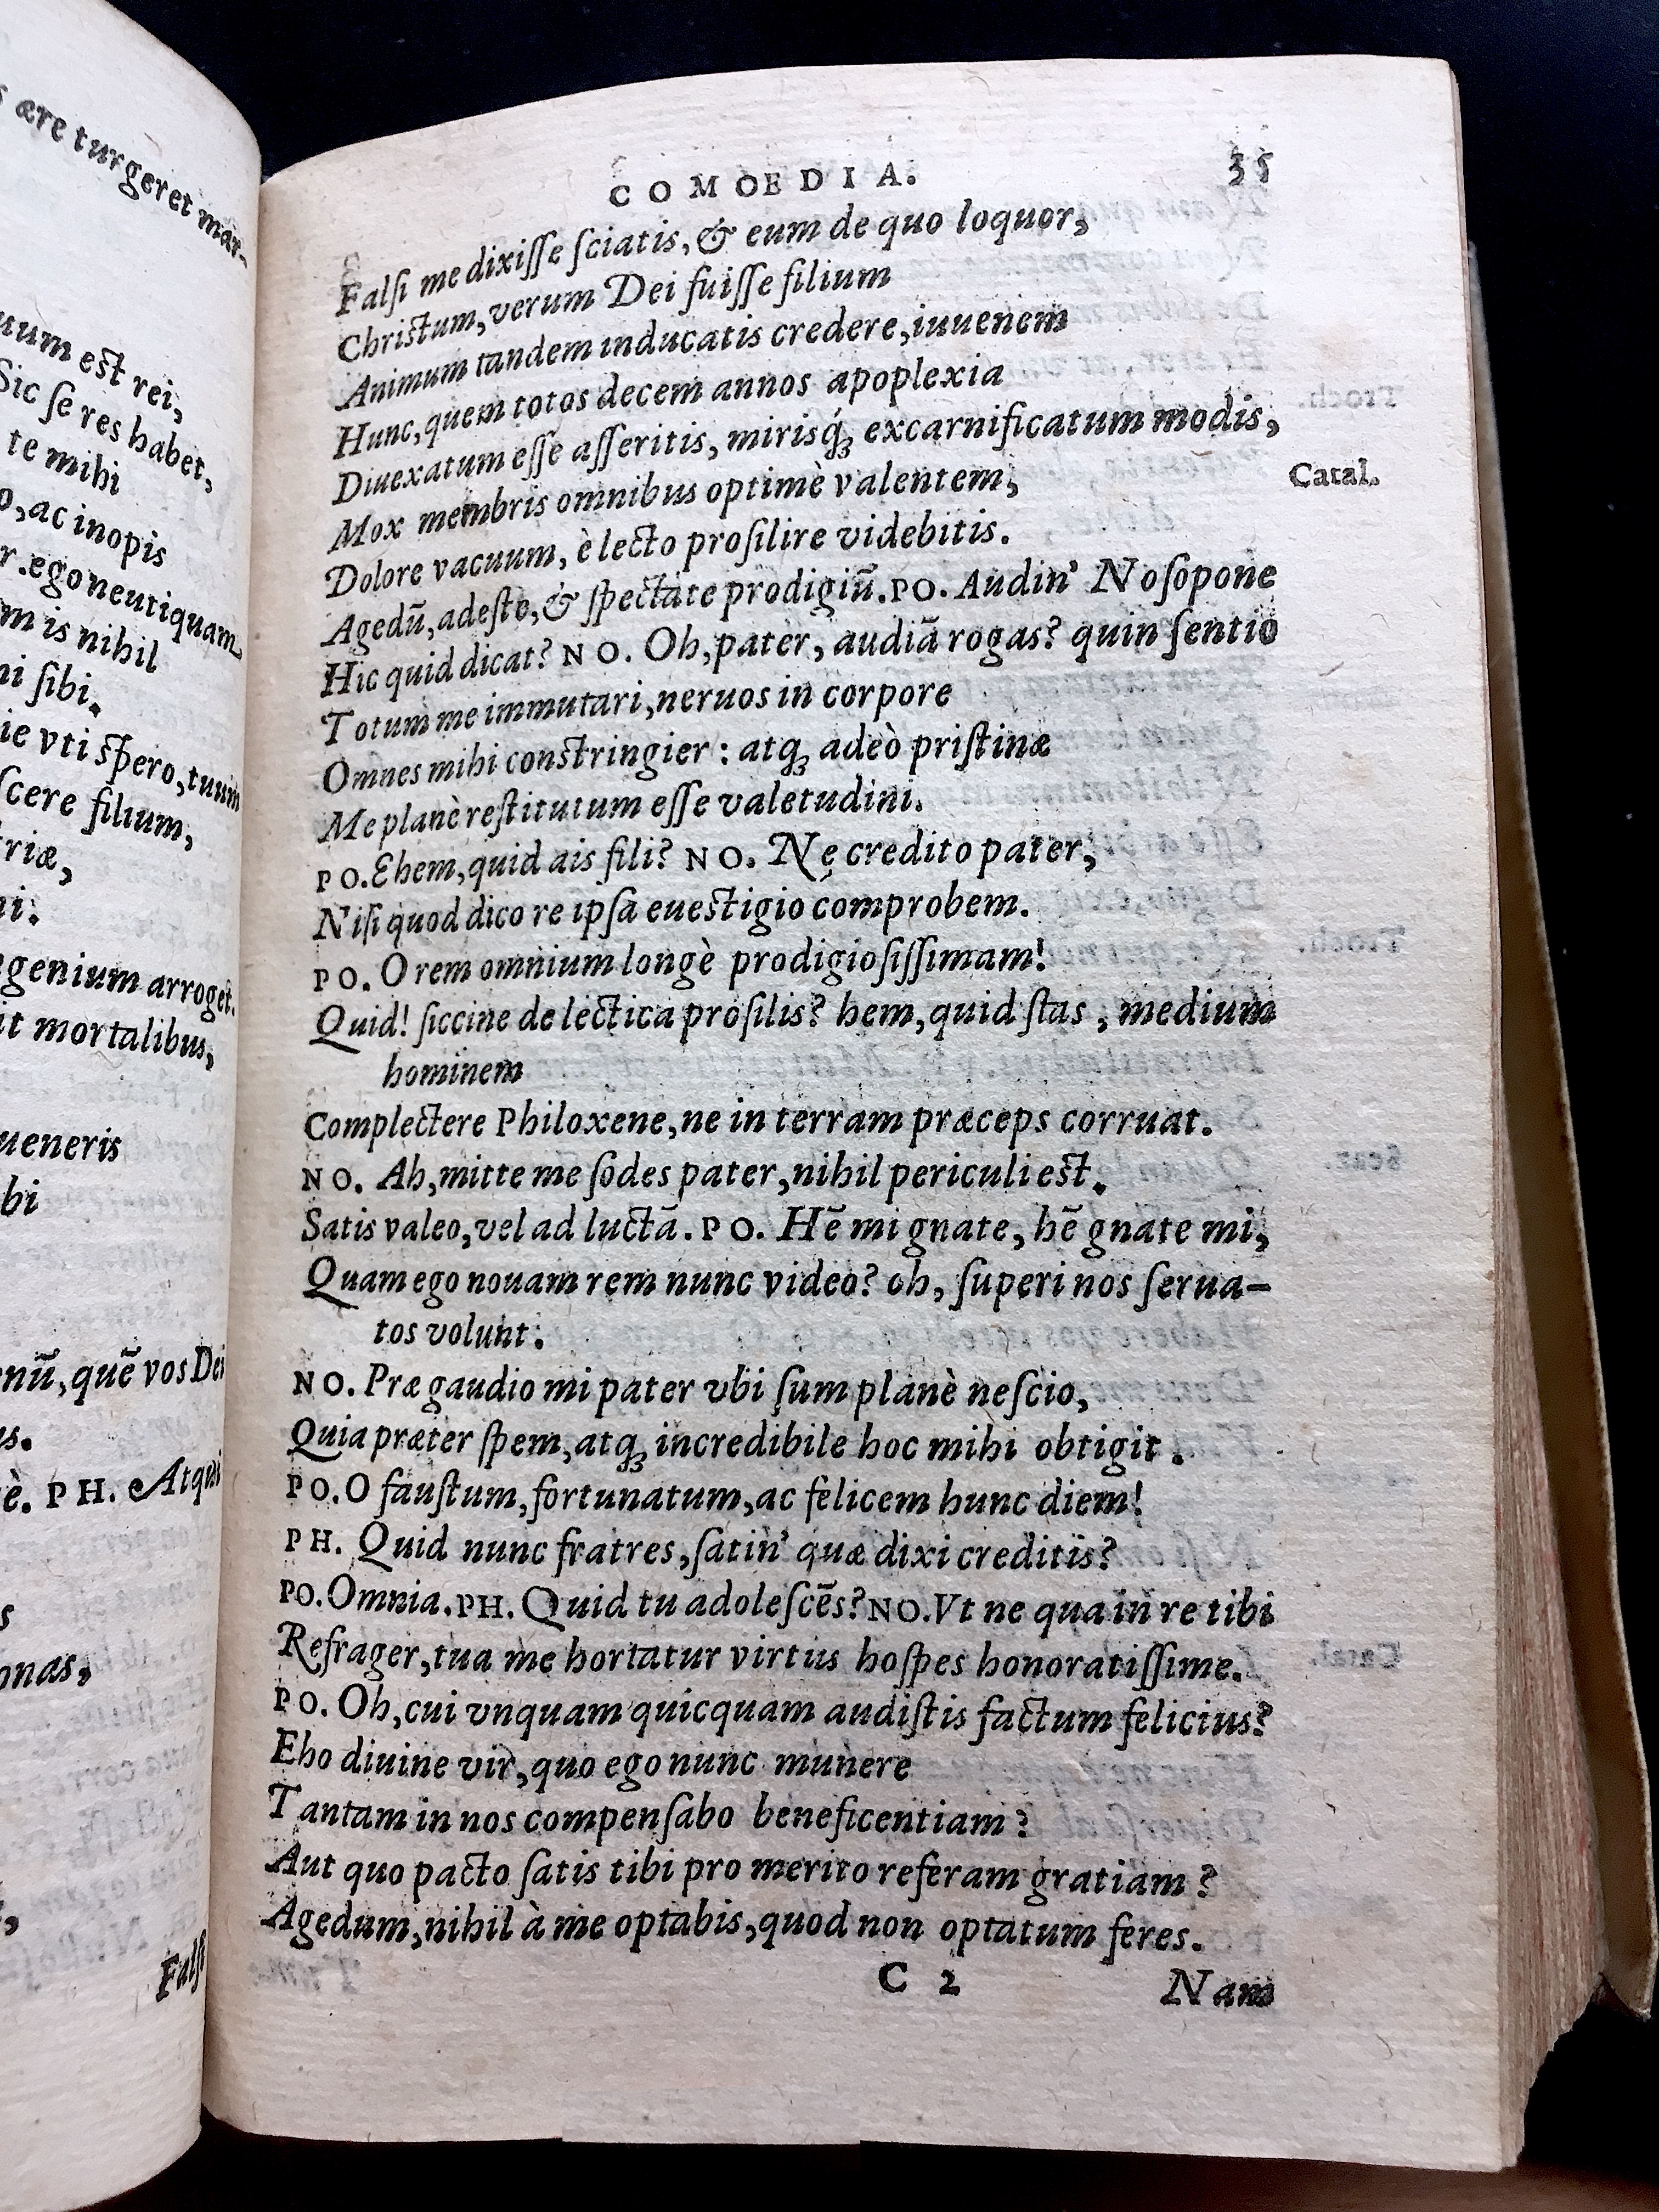 ære turgeret mar-
uum est rei,
Sic se res habet,
te mihi
ac inopis
ego neutiquam
m is nihil
ni sibi.
ie vti spero, tuum
scere filium,
triæ,
ni:
genium arroget.
it mortalibus,
ueneris
bi
enū, quē vos Dei
us.
è. PH. Atqui
s
onas,
Fals
COMOEDIA. 35
Falsi me dixisse sciatis, & eum de quo loquor,
Christum, verum Dei fuisse filium
Animum tandem inducatis credere, iuuenem
Hunc, quem totos decem annos apoplexia
Diuexatum esse asseritis, mirisq́ꝫ excarnificatum modis,
Mox membris omnibus optimè valentem, Catal.
Dolore vacuum, è lecto prosilire videbitis.
Agedū, adeste, & spectate prodigiū. PO. Audin' Nosopone
Hic quid dicat? NO. Oh, pater, audiā rogas? quin sentio
Totum me immutari, neruos in corpore
Omnes mihi constringier: atqꝫ adeò pristinæ
Me planè restitutum esse valetudini.
PO. Ehem, quid ais fili? NO. Ne credito pater,
Nisi quod dico re ipsa euestigio comprobem.
PO. O rem omnium longè prodigiosissimam!
Quid! siccine de lectica prosilis? hem, quid stas, medium
hominem
Complectere Philoxene, ne in terram præceps corruat.
NO. Ah, mitte me sodes pater, nihil periculi est.
Satis valeo, vel ad luctā. PO. Hē mi gnate, hē gnate mi,
Quam ego nouam rem nunc video? oh, superi nos serua-
tos volunt.
NO. Præ gaudio mi pater vbi sum planè nescio,
Quia præter spem, atqꝫ incredibile hoc mihi obtigit.
PO. O faustum, fortunatum, ac felicem hunc diem!
PH. Quid nunc fratres, satin' quæ dixi creditis?
PO. Omnia. PH. Quid tu adolescēs? NO. Vt ne qua in re tibi
Refrager, tua me hortatur virtus hospes honoratissime.
PO. Oh, cui vnquam quicquam audistis factum felicius?
Eho diuine vir, quo ego nunc munere
Tantam in nos compensabo beneficentiam?
Aut quo pacto satis tibi pro merito referam gratiam?
Agedum, nihil à me optabis, quod non optatum feres.
C 2 Nam